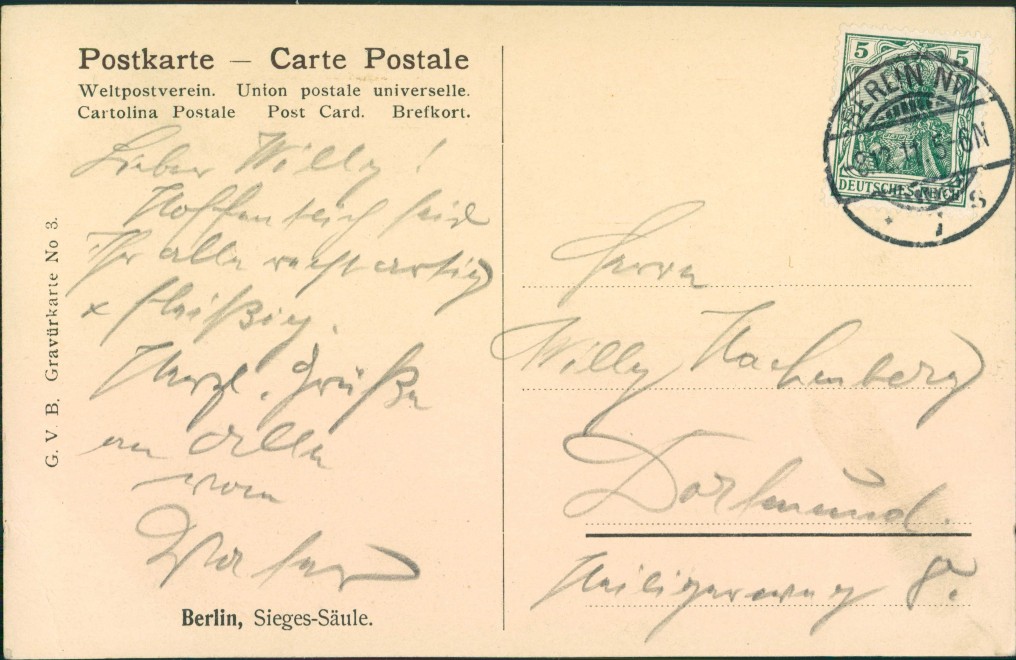 Postkarte — Carte Postale
Weltpostverein. Union postale universelle.
Cartolina Postale Post Card. Brefkort.
Lieber Willy!
Hoffentlich seid
Ihr alle recht artig
x fleißig.
Herzl. Grüße
an alle
vom
Vater
Berlin, Sieges-Säule.
G. V. B. Gravürkarte No 3.
5 5
DEUTSCHES REICH
BERLIN NW
12.11. 5-6N
Herrn
Willy Hachenberg
Dortmund.
Heiligerweg 8.